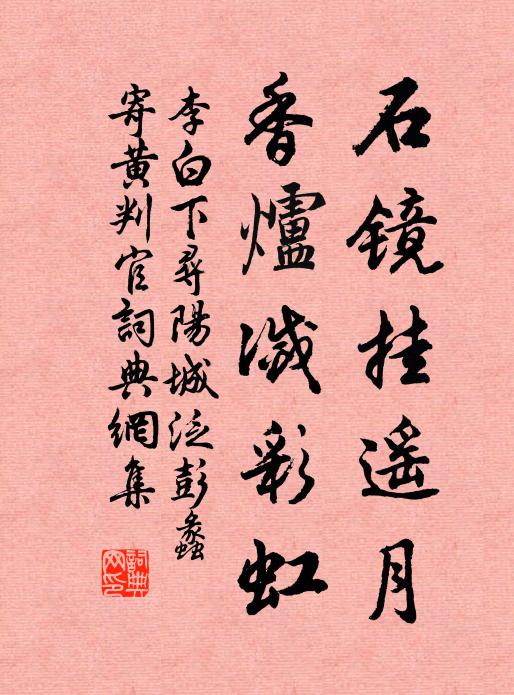 石镜挂遥月
香爐滅彩虹
李白下尋陽城泛彭蠡
寄黄判官詞典網集
詞典網印